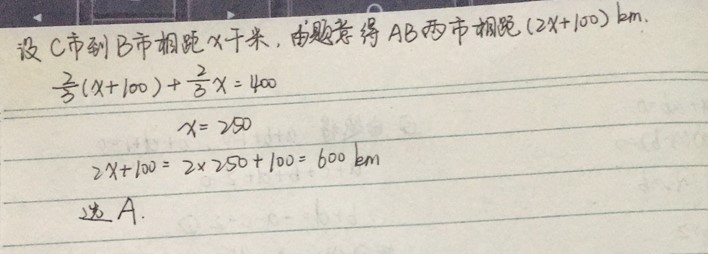 设 C市到B市相距x千米，由题意得AB两市相距(2x+100) km.
2/3(x+100)+2/3x=400
x=250
2x+100=2×250+100=600 km
选 A.